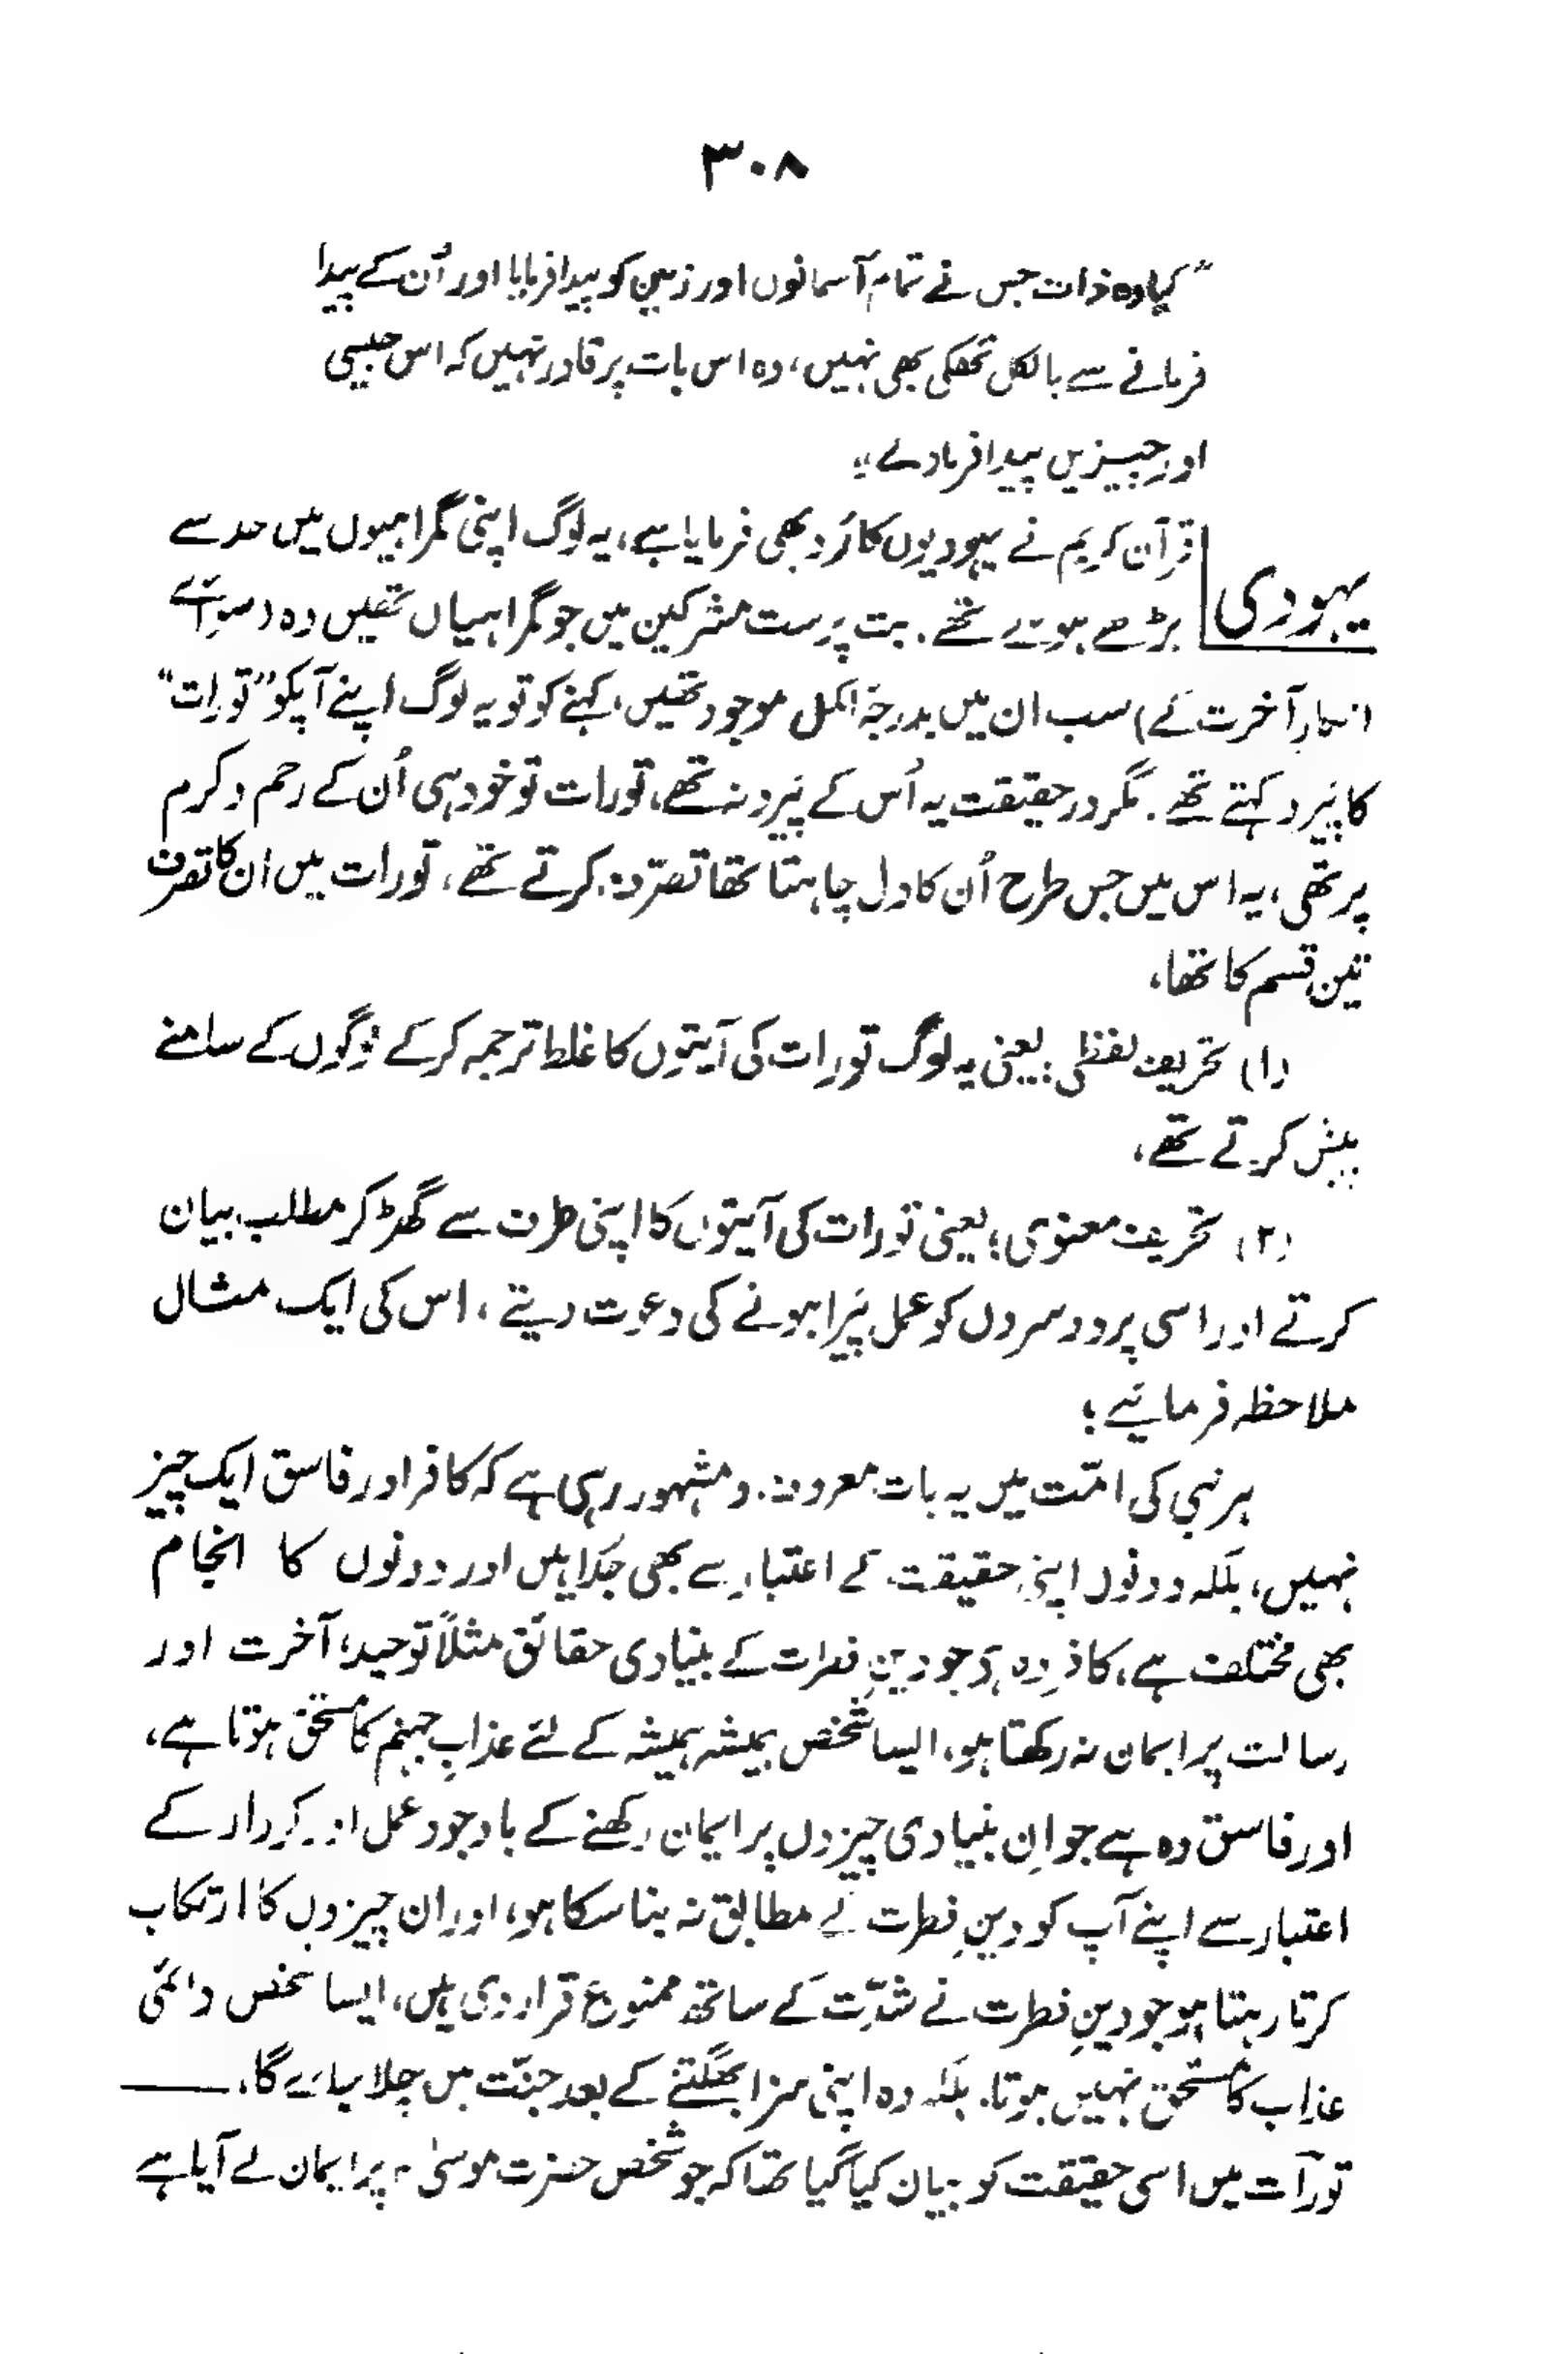 ۳۰۸
"کیا وہ ذات جس نے تمام آسمانوں اور زمین کو پیدا فرمایا اور اُن کے پیدا
فرمانے سے بالکل تھکی بھی نہیں، وہ اس بات پر قادر نہیں کہ اس جیسی
اور چیزیں پیدا فرمادے"
یہودی
قرآن کریم نے یہودیوں کا رَد بھی فرمایا ہے، یہ لوگ اپنی گمراہیوں میں حد سے
بڑھے ہوئے تھے. بت پرست مشرکین میں جو گمراہیاں تھیں وہ (سوائے
انکارِ آخرت کے) سب ان میں بدرجۂ اکمل موجود تھیں، کہنے کو تو یہ لوگ اپنے آپکو "تورات"
کا پَیرو کہتے تھے. مگر درحقیقت یہ اُس کے پَیرو نہ تھے، تورات تو خود ہی اُن کے رحم و کرم
پر تھی، یہ اس میں جس طرح اُن کا دل چاہتا تھا تصرّف کرتے تھے، تورات میں ان کا تصرف
تین قسم کا تھا،
(۱) تحریف لفظی؛ یعنی یہ لوگ تورات کی آیتوں کا غلط ترجمہ کرکے لوگوں کے سامنے
پیش کرتے تھے،
(۲) تحریف معنوی؛ یعنی تورات کی آیتوں کا اپنی طرف سے گھڑ کر مطلب بیان
کرتے اور اسی پر دوسروں کو عمل پَیرا ہونے کی دعوت دیتے، اس کی ایک مثال
ملاحظہ فرمائیے؛
ہر نبی کی امّت میں یہ بات معروف و مشہور رہی ہے کہ کافر اور فاسق ایک چیز
نہیں، بلکہ دونوں اپنی حقیقت کے اعتبار سے بھی جُدا ہیں اور دونوں کا انجام
بھی مختلف ہے، کافر وہ ہے جو دینِ فطرت کے بنیادی حقائق مثلاً توحید، آخرت اور
رسالت پر ایمان نہ رکھتا ہو، ایسا شخص ہمیشہ ہمیشہ کے لئے عذابِ جہنم کا مستحق ہوتا ہے،
اور فاسق وہ ہے جو اِن بنیادی چیزوں پر ایمان رکھنے کے باوجود عمل اور کردار کے
اعتبار سے اپنے آپ کو دینِ فطرت کے مطابق نہ بنا سکا ہو، اور ان چیزوں کا ارتکاب
کرتا رہتا ہو جو دینِ فطرت نے شدّت کے ساتھ ممنوع قرار دی ہیں، ایسا شخص دائمی
عذاب کا مستحق نہیں ہوتا. بلکہ وہ اپنی سزا بھگتنے کے بعد جنّت میں چلا جائے گا،——
تورات میں اسی حقیقت کو بیان کیا گیا تھا کہ جو شخص حضرت موسیٰ ؑ پر ایمان لے آیا ہے